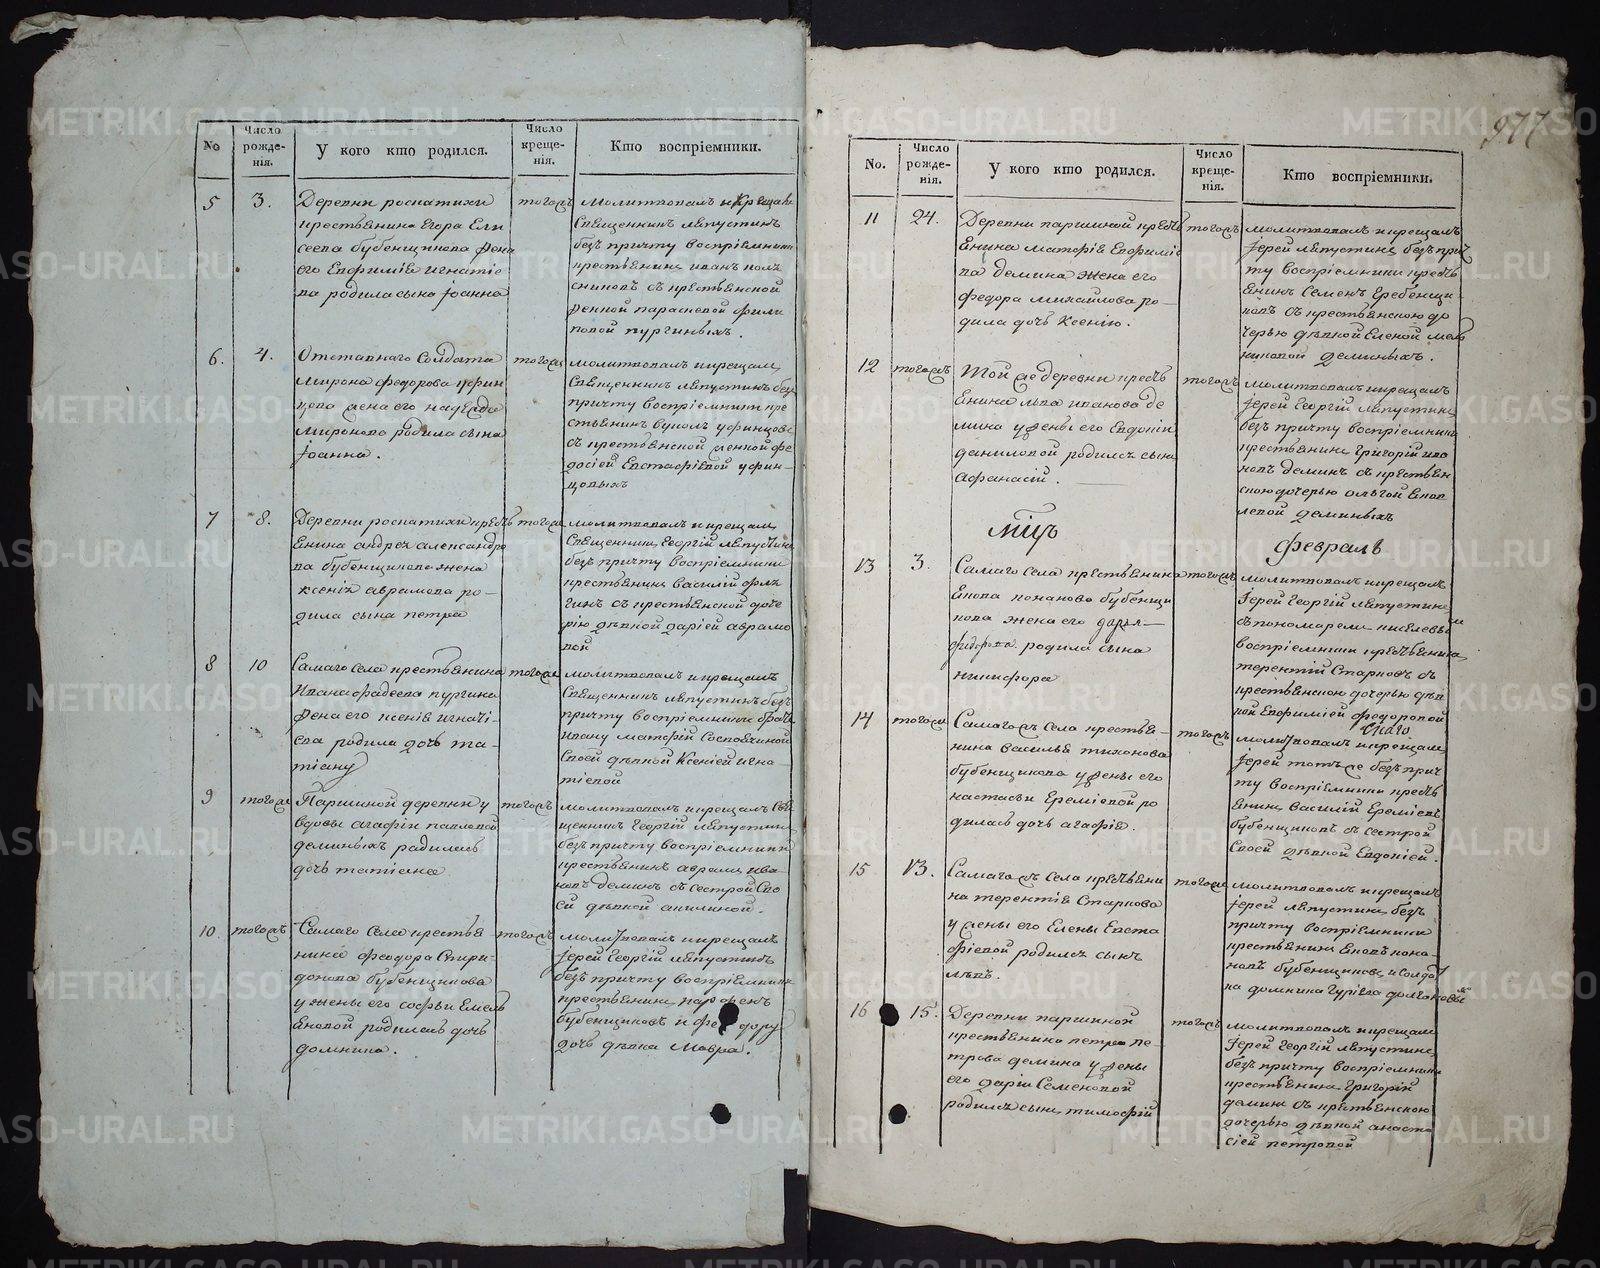 No
Число рожде-нія.
У кого кто родился.
Число креще-нія.
Кто воспріемники.
5
3.
Деревни роскатихи
крестьянина Егора Ели
сеева бубенщикова жена
его Евфимія игнатіе
ва родила сына Іоанна
тогожъ
молитвовалъ и крещалъ
Священникъ Ляпустинъ
безъ причту воспріемники
крестьянинъ иванъ
съ крестьянской
женкой параскевой фили
повой пургиныхъ.
6.
4.
Отставнаго Солдата
мирона федорова уфин
цова жена его надежда
миронова родила сына
Іоанна.
тогожъ
молитвовалъ и крещалъ
Священникъ Ляпустинъ безъ
причту воспріемники кре
стьянинъ вуколъ уфинцовъ
съ крестьянской женкой фе
досіей Евстафіевой уфин-
цовыхъ
7
8.
Деревни роскатихи кресть
янина андрея александро
ва бубенщикова жена
ксенія аврамова ро-
дила сына петра
тогожъ
молитвовалъ и крещалъ
Священникъ Георгій Ляпустинъ
безъ причту воспріемники
крестьянинъ василій
съ крестьянской доче
рію дѣвкой даріей аврамо
вой
8
10
Самаго села крестьянина
Ивана фадеева пургина
жена его ксенія игнаті-
ева родила дочь та-
тіану
тогожъ
молитвовалъ и крещалъ
Священникъ Ляпустинъ безъ
причту воспріемники братъ
ивану матфій
своей дѣвкой Ксеніей игна
тіевой
9
тогожъ
Паршиной деревни у
вдовы агафіи павловой
деминыхъ родилась
дочь татіана
тогожъ
молитвовалъ и крещалъ Свя
щенникъ Георгій Ляпустинъ
безъ причту воспріемники
крестьянинъ аврамъ ива
новъ деминъ съ сестрой сво
ей дѣвкой акилиной.
10.
тогожъ
Самаго Села крестья-
нина феодора Спири-
донова бубенщикова
у жены его софьи Емель
яновой родилась дочь
домника.
тогожъ
молитвовалъ и крещалъ
Іерей Георгій Ляпустинъ
безъ причту воспріемники
крестьянинъ парфенъ
бубенщиковъ и феодору
дочь дѣвка Мавра.
977
No.
Число рожде-нія.
У кого кто родился.
Число креще-нія.
Кто воспріемники.
11
24.
Деревни паршиной кресть
янина матфія Евфиміе
ва демина жена его
федора михайлова ро-
дила дочь Ксенію.
тогожъ
молитвовалъ и крещалъ
Іерей Ляпустинъ безъ прич
ту воспріемники кресть
янинъ Семенъ бубенщи-
ковъ съ крестьянскою до
черью дѣвкой Еленой
деминыхъ.
12
тогожъ
Той же деревни кресть
янина льва иванова де
мина у жены его Евдокіи
даниловой родился сынъ
афанасій.
тогожъ
молитвовалъ и крещалъ
Іерей Георгій Ляпустинъ
безъ причту воспріемники
крестьянинъ Григорій ива
новъ деминъ съ крестьян
скою дочерью ольгой яков
левой деминыхъ
мцъ
февраль
13
3.
Самаго села крестьянина
Якова кононова бубенщи
кова жена его дарья
федорова родила сына
никифора
тогожъ
молитвовалъ и крещалъ
Іерей Георгій Ляпустинъ
съ пономаремъ киселевымъ
воспріемники крестьянинъ
терентій Старковъ съ
крестьянскою дочерью дѣв
кой Евфиміей федоровой
14
тогожъ
Самагожъ Села крестья-
нина василья тихонова
бубенщикова у жены его
настасьи Ереміевой ро
дилась дочь агафія.
тогожъ
молитвовалъ и крещалъ
Іерей тотъ же безъ прич
ту воспріемники кресть
янинъ василій Ереміевъ
бубенщиковъ съ сестрой
своей дѣвкой Евдокіей.
15
13.
Самагожъ села крестьяни
на терентія Старкова
у жены его Елены Евста
фіевой родился сынъ
львъ.
тогожъ
молитвовалъ и крещалъ
Іерей Ляпустинъ безъ
причту воспріемники
крестьянинъ Яковъ коно-
новъ бубенщиковъ и солдат
ка домника гуріева
16
15.
Деревни паршиной
крестьянина петра пе-
трова демина у жены
его даріи Семеновой
родился сынъ тимофій
тогожъ
молитвовалъ и крещалъ
Іерей Георгій Ляпустинъ
безъ причту воспріемники
крестьянинъ Григорій
деминъ съ крестьянскою
дочерью дѣвкой анаста
сіей петровой